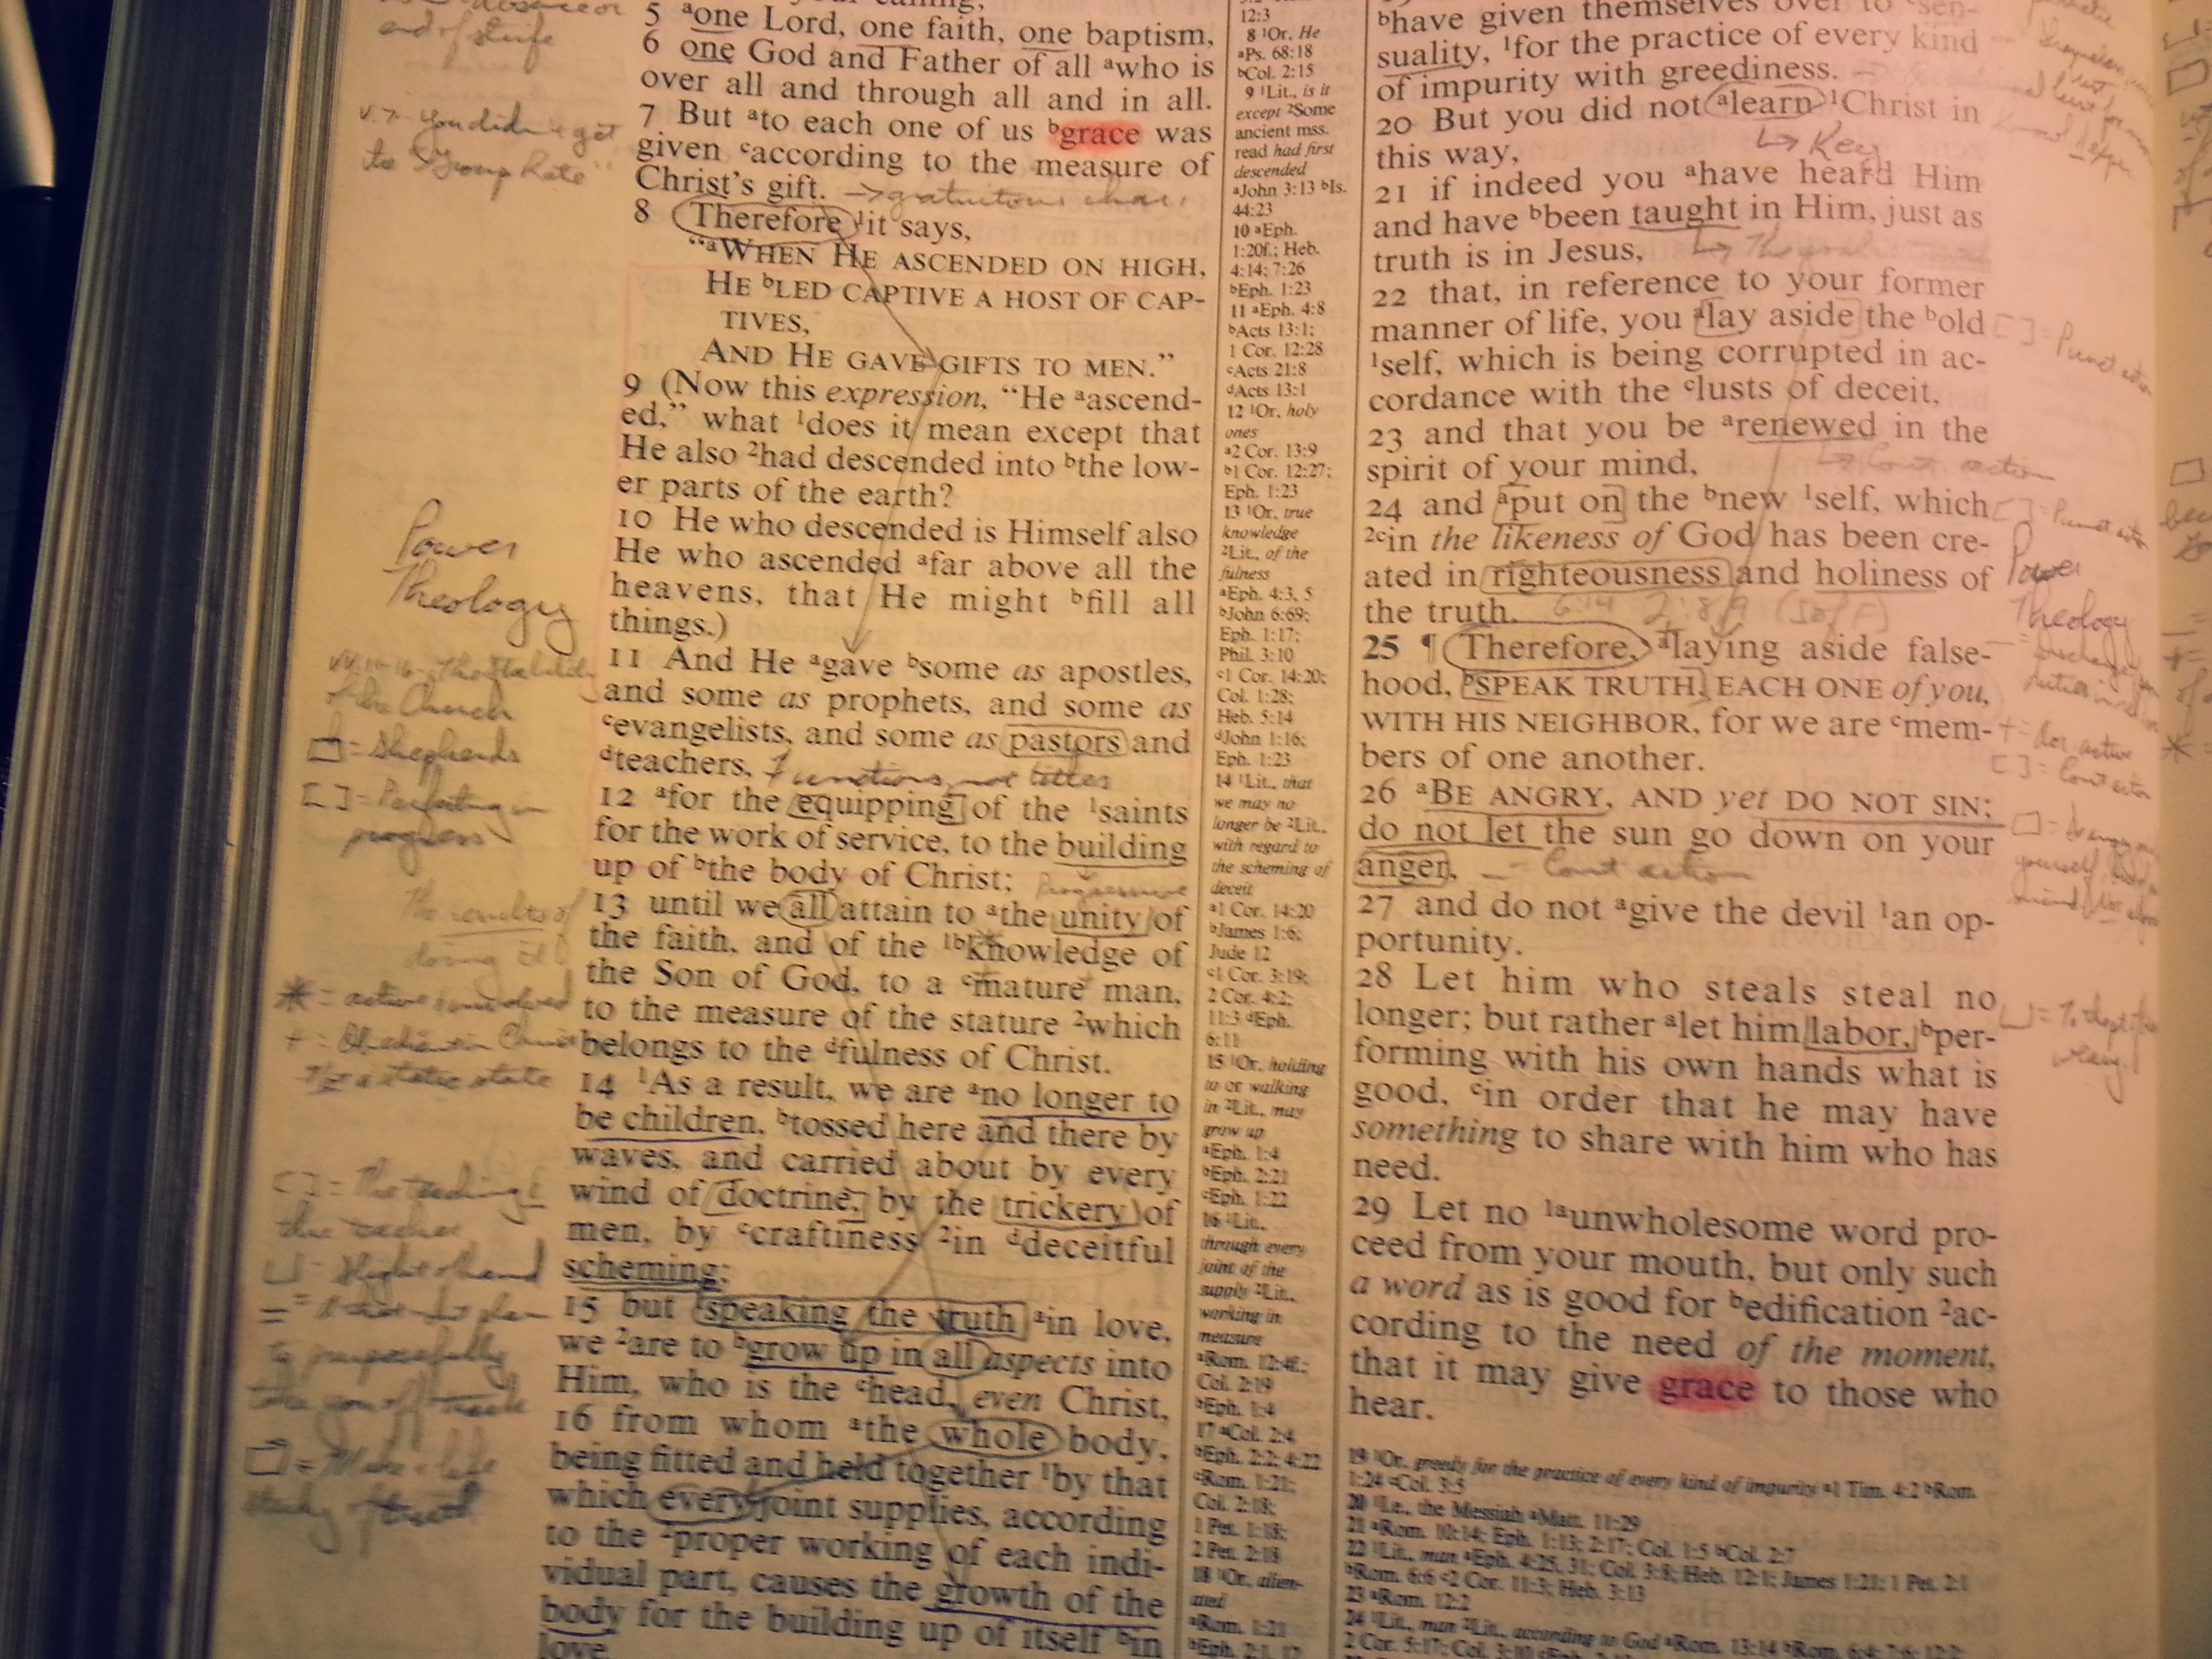 end of strife
5 ᵃone Lord, one faith, one baptism,
6 one God and Father of all ᵃwho is
over all and through all and in all.
7 But ᵃto each one of us ᵇgrace was
given ᶜaccording to the measure of
Christ's gift. → gratuitous
8 Therefore ¹it says,
"ᵃWHEN HE ASCENDED ON HIGH,
HE ᵇLED CAPTIVE A HOST OF CAP-
TIVES,
AND HE GAVE GIFTS TO MEN."
9 (Now this expression, "He ᵃascend-
ed," what ¹does it mean except that
He also ²had descended into ᵇthe low-
er parts of the earth?
10 He who descended is Himself also
He who ascended ᵃfar above all the
heavens, that He might ᵇfill all
things.)
11 And He ᵃgave ᵇsome as apostles,
and some as prophets, and some as
ᶜevangelists, and some as pastors and
ᵈteachers, functions, not titles
12 ᵃfor the equipping of the ¹saints
for the work of service, to the building
up of ᵇthe body of Christ; Progressive
13 until we all attain to ᵃthe unity of
the faith, and of the ¹ᵇknowledge of
the Son of God, to a ᶜmature man,
to the measure of the stature ²which
belongs to the ᵈfulness of Christ.
14 ¹As a result, we are ᵃno longer to
be children, ᵇtossed here and there by
waves, and carried about by every
wind of doctrine, by the trickery of
men, by ᶜcraftiness ²in ᵈdeceitful
scheming;
15 but ¹speaking the truth ᵃin love,
we ²are to ᵇgrow up in all aspects into
Him, who is the ᶜhead, even Christ,
16 from whom ᵃthe whole body,
being fitted and held together ¹by that
which every joint supplies, according
to the ²proper working of each indi-
vidual part, causes the growth of the
body for the building up of itself ᵇin
love.
v. 7 - You didn't get
the "Group Rate"
Power
Theology
of the Church
□ = Shepherds
[ ] = Perfecting in
progress
The results of
doing it
* = active & involved
Not a static state
[ ] = The teaching &
the teacher
= Slight of hand
to purposefully
take you off track
□ = Make a life
study of truth
12:3
8 ¹Or, He
ᵃPs. 68:18
ᵇCol. 2:15
9 ¹Lit., is it
except ²Some
ancient mss.
read had first
descended
ᵃJohn 3:13 ᵇIs.
44:23
10 ᵃEph.
1:20f.; Heb.
4:14; 7:26
ᵇEph. 1:23
11 ᵃEph. 4:8
ᵇActs 13:1;
1 Cor. 12:28
ᶜActs 21:8
ᵈActs 13:1
12 ¹Or, holy
ones
ᵃ2 Cor. 13:9
ᵇ1 Cor. 12:27;
Eph. 1:23
13 ¹Or, true
knowledge
²Lit., of the
fulness
ᵃEph. 4:3, 5
ᵇJohn 6:69;
Eph. 1:17;
Phil. 3:10
ᶜ1 Cor. 14:20;
Col. 1:28;
Heb. 5:14
ᵈJohn 1:16;
Eph. 1:23
14 ¹Lit., that
we may no
longer be ²Lit.,
with regard to
the scheming of
deceit
ᵃ1 Cor. 14:20
ᵇJames 1:6;
Jude 12
ᶜ1 Cor. 3:19;
2 Cor. 4:2;
11:3 ᵈEph.
6:11
15 ¹Or, holding
to or walking
in ²Lit., may
grow up
ᵃEph. 1:4
ᵇEph. 2:21
ᶜEph. 1:22
16 ¹Lit.,
through every
joint of the
supply ²Lit.,
working in
measure
ᵃRom. 12:4f.;
Col. 2:19
ᵇEph. 1:4
17 ᵃCol. 2:4
ᵇEph. 2:2; 4:22
ᶜRom. 1:21;
Col. 2:18;
1 Pet. 1:18;
2 Pet. 2:18
18 ¹Or, alien-
ated
ᵃRom. 1:21
ᵇEph. 2:1, 12
ᵇhave given themselves over to ᶜsen-
suality, ¹for the practice of every kind
of impurity with greediness.
20 But you did not ᵃlearn ¹Christ in
this way, → Key
21 if indeed you ᵃhave heard Him
and have ᵇbeen taught in Him, just as
truth is in Jesus,
22 that, in reference to your former
manner of life, you ᵃlay aside the ᵇold
¹self, which is being corrupted in ac-
cordance with the ᶜlusts of deceit,
23 and that you be ᵃrenewed in the
spirit of your mind, → Cont. action
24 and ᵃput on the ᵇnew ¹self, which
²ᶜin the likeness of God has been cre-
ated in righteousness and holiness of
the truth. 6:14
25 ¶ Therefore, ᵃlaying aside false-
hood, ᵇSPEAK TRUTH, EACH ONE of you,
WITH HIS NEIGHBOR, for we are ᶜmem-
bers of one another.
26 ᵃBE ANGRY, AND yet DO NOT SIN;
do not let the sun go down on your
anger, — Cont action
27 and do not ᵃgive the devil ¹an op-
portunity.
28 Let him who steals steal no
longer; but rather ᵃlet him labor, ᵇper-
forming with his own hands what is
good, ᶜin order that he may have
something to share with him who has
need.
29 Let no ¹ᵃunwholesome word pro-
ceed from your mouth, but only such
a word as is good for ᵇedification ²ac-
cording to the need of the moment,
that it may give grace to those who
hear.
19 ¹Or, greedy for the practice of every kind of impurity ᵃ1 Tim. 4:2 ᵇRom.
1:24 ᶜCol. 3:5
20 ¹I.e., the Messiah ᵃMatt. 11:29
21 ᵃRom. 10:14; Eph. 1:13; 2:17; Col. 1:5 ᵇCol. 2:7
22 ¹Lit., man ᵃEph. 4:25, 31; Col. 3:8; Heb. 12:1; James 1:21; 1 Pet. 2:1
ᵇRom. 6:6 ᶜ2 Cor. 11:3; Heb. 3:13
23 ᵃRom. 12:2
24 ¹Lit., man ²Lit., according to God ᵃRom. 13:14 ᵇRom. 6:4; 7:6; 12:2;
2 Cor. 5:17; Col. 3:10
[ ] = Punct action
[ ] = Punct action
Power
Theology
[ ] = Cont action